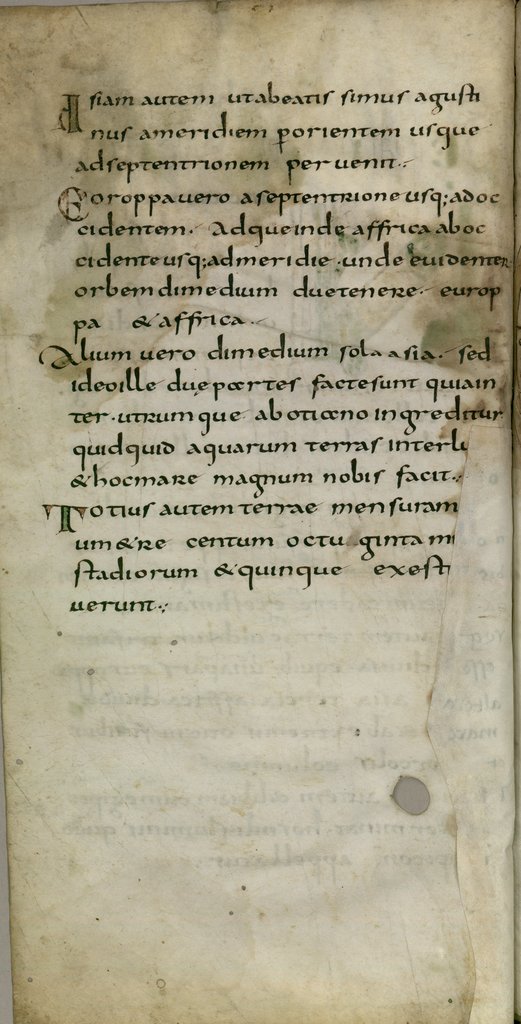 Asiam autem ut abeatis simus agusti
nus ameridiem porientem usque
adseptentrionem pervenit.
Eoroppa vero aseptentrione usq; ad oc
cidentem. Adque inde affrica ab oc
cidente usq; ad meridie. unde evidenter
orbem dimedium duetenere. europ
pa & affrica.
Alium vero dimedium sola asia. sed
ideo ille due partes facte sunt quia in
ter. utrumque ab oticeno ingreditur
quidquid aquarum terras interlu
& hoc mare magnum nobis facit.
Totius autem terrae mensuram
um&re centum octuginta mi
stadiorum & quinque exesti
verunt.